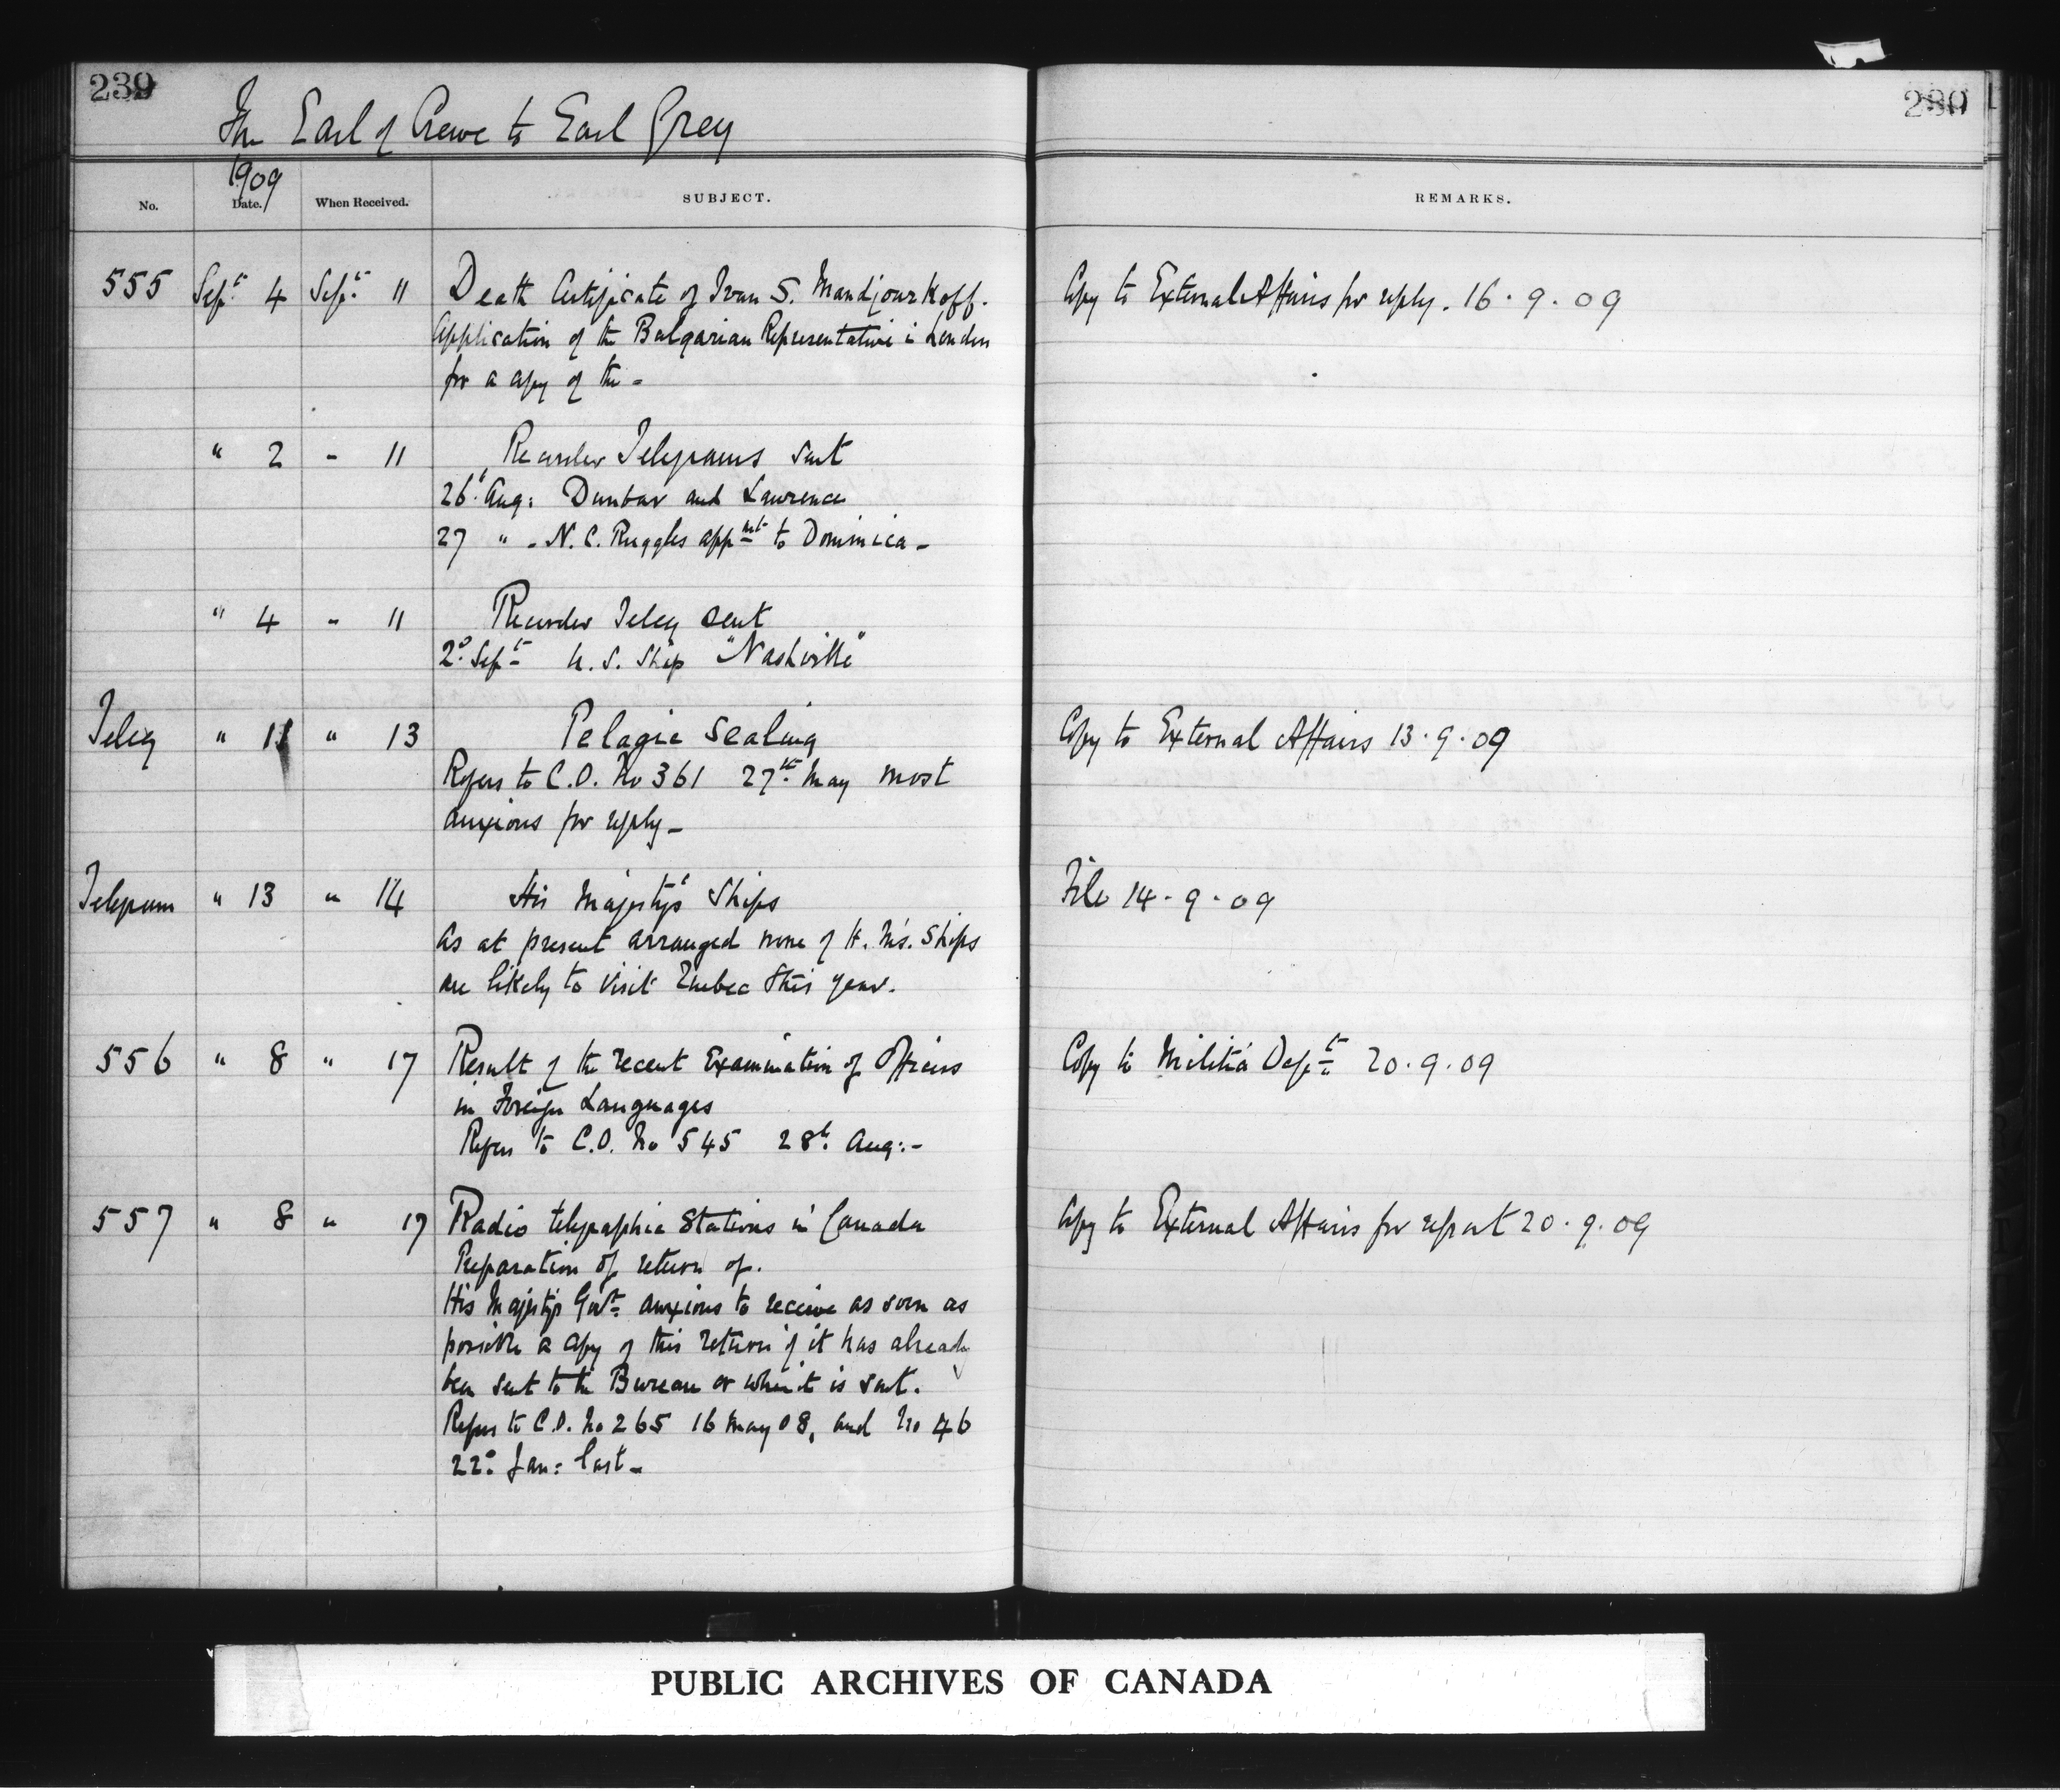 239
280
The Earl of Crewe to Earl Grey
1909
No. Date. When Received. SUBJECT. REMARKS.
555 Sept. 4 Sept. 11 Death Certificate of Ivan S. Mandjourkoff. Copy to External Affairs for reply. 16.9.09
Application of the Bulgarian Representative in London
for a copy of the -
" 2 - 11 Recorder Telegrams sent
26t. Aug: Dunbar and Lawrence
27 " - N. C. Ruggles appmt to Dominica -
" 4 - 11 Recorder Teleg sent
2d. Sept U. S. Ship "Nashville"
Teleg " 11 " 13 Pelagic Sealing Copy to External Affairs 13.9.09
Refers to C.O. No 361 27th May most
anxious for reply -
Telegram " 13 " 14 His Majesty's Ships File 14.9.09
As at present arranged none of H. M's. Ships
are likely to visit Quebec this year.
556 " 8 " 17 Result of the recent Examination of Officers Copy to Militia Dept. 20.9.09
in Foreign Languages
Refers to C.O. No 545 28t. Aug: -
557 " 8 " 17 Radio telegraphic Stations in Canada Copy to External Affairs for report 20.9.09
Preparation of return of.
His Majesty's Govt. anxious to receive as soon as
possible a copy of this return if it has already
been sent to the Bureau or when it is sent.
Refers to C.O. No 265 16 May 08, and No 46
22d. Jan: last -
PUBLIC ARCHIVES OF CANADA